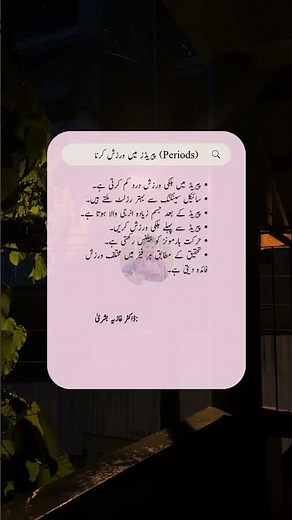 پیریڈز میں ورزش کرنا (Periods)
• پیریڈ میں ہلکی ورزش درد کم کرتی ہے۔
• سائیکل سینکنگ سے بہتر رزلٹ ملتے ہیں۔
• پیریڈ کے بعد جسم زیادہ انرجی والا ہوتا ہے۔
• پیریڈ سے پہلے ہلکی ورزش کریں۔
• حرکت ہارمونز کو بیلنس رکھتی ہے۔
• تحقیق کے مطابق ہر فیز میں مختلف ورزش
فائدہ دیتی ہے۔
ڈاکٹر غازیہ بشریٰ: